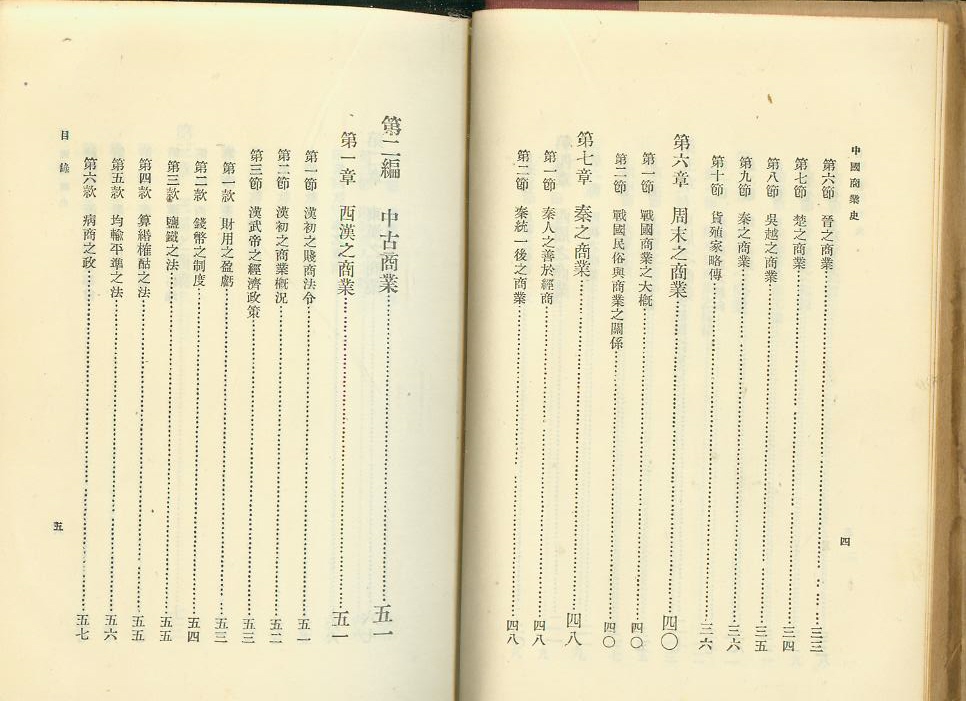 中國商業史
第六節 晉之商業 三三
第七節 楚之商業 三四
第八節 吳越之商業 三五
第九節 秦之商業 三六
第十節 貨殖家略傳 三六
第六章 周末之商業 四〇
第一節 戰國商業之大概 四〇
第二節 戰國民俗與商業之關係 四〇
第七章 秦之商業 四八
第一節 秦人之善於經商 四八
第二節 秦統一後之商業 四八
四
第二編 中古商業 五一
第一章 西漢之商業 五一
第一節 漢初之賤商法令 五一
第二節 漢初之商業概況 五二
第三節 漢武帝之經濟政策 五三
第一款 財用之盈虧 五三
第二款 錢幣之制度 五四
第三款 鹽鐵之法 五五
第四款 算緡榷酤之法 五五
第五款 均輸平準之法 五六
第六款 病商之政 五七
目錄
五